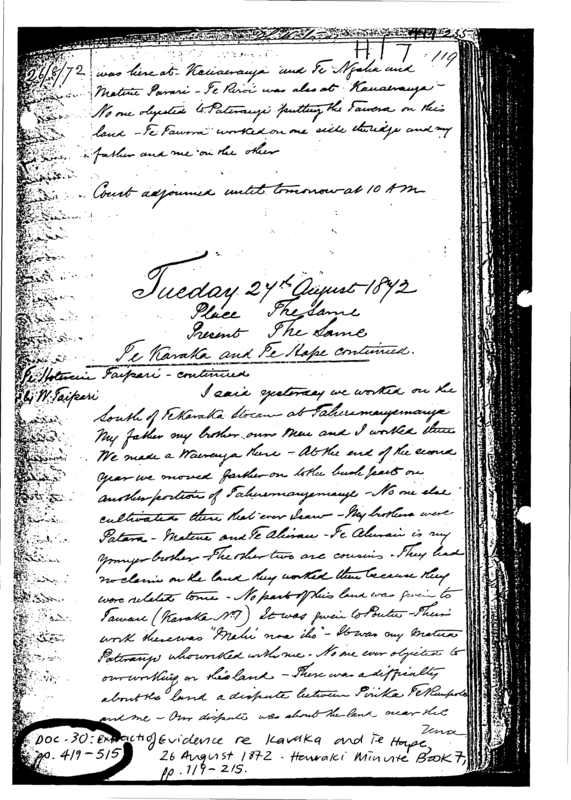 H/7
119
26/8/72
was here at Kauaeranga and Te Ngaha and
Matene Parari - Te Piroi was also at Kauaeranga -
No one objected to Paterangi putting the Tawera on this
land - Te Tawera worked on one side the ridge and my
father and me on the other
Court adjourned until tomorrow at 10 AM
Tuesday 27th August 1872
Place The Same
Present The Same
Te Karaka and Te Hape continued.
Taipari - continued
by W. Taipari
I said yesterday we worked on the
South of Te Karaka Stream at
My father my brother our men and I worked there
We made a there - At the end of the second
year we moved farther on to the bush parts on
another portion of - No one else
cultivated there that ever I saw - My brothers were
Patara - Matene and - is my
younger brother - The other two are cousins - They had
no claim on the land they worked there because they
were related to me - No part of this land was given to
(Karaka No 7) It was given to - Their
work there was "Mahi noa iho" - It was my Matua
Paterangi who worked with me. No one ever objected to
our working on this land - There was a difficulty
about the land a dispute between Pirika
and me - Our dispute was about the land near the
DOC. 30: Extract of Evidence re Karaka and Te Hape,
pp. 419-515
26 August 1872. Hauraki Minute Book 7,
pp. 119-215.